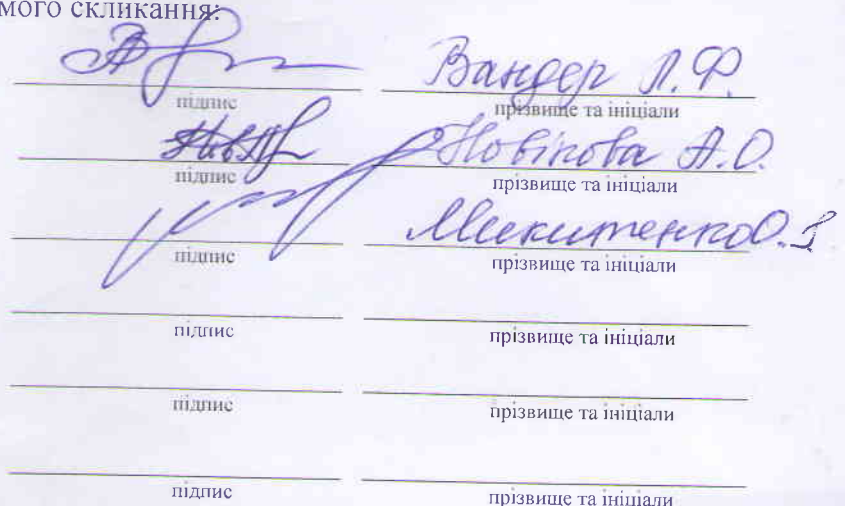 мого скликання:
Вандер Л.Ф.
підпис прізвище та ініціали
Новікова А.О.
підпис прізвище та ініціали
Микитенко О.
підпис прізвище та ініціали
підпис прізвище та ініціали
підпис прізвище та ініціали
підпис прізвище та ініціали